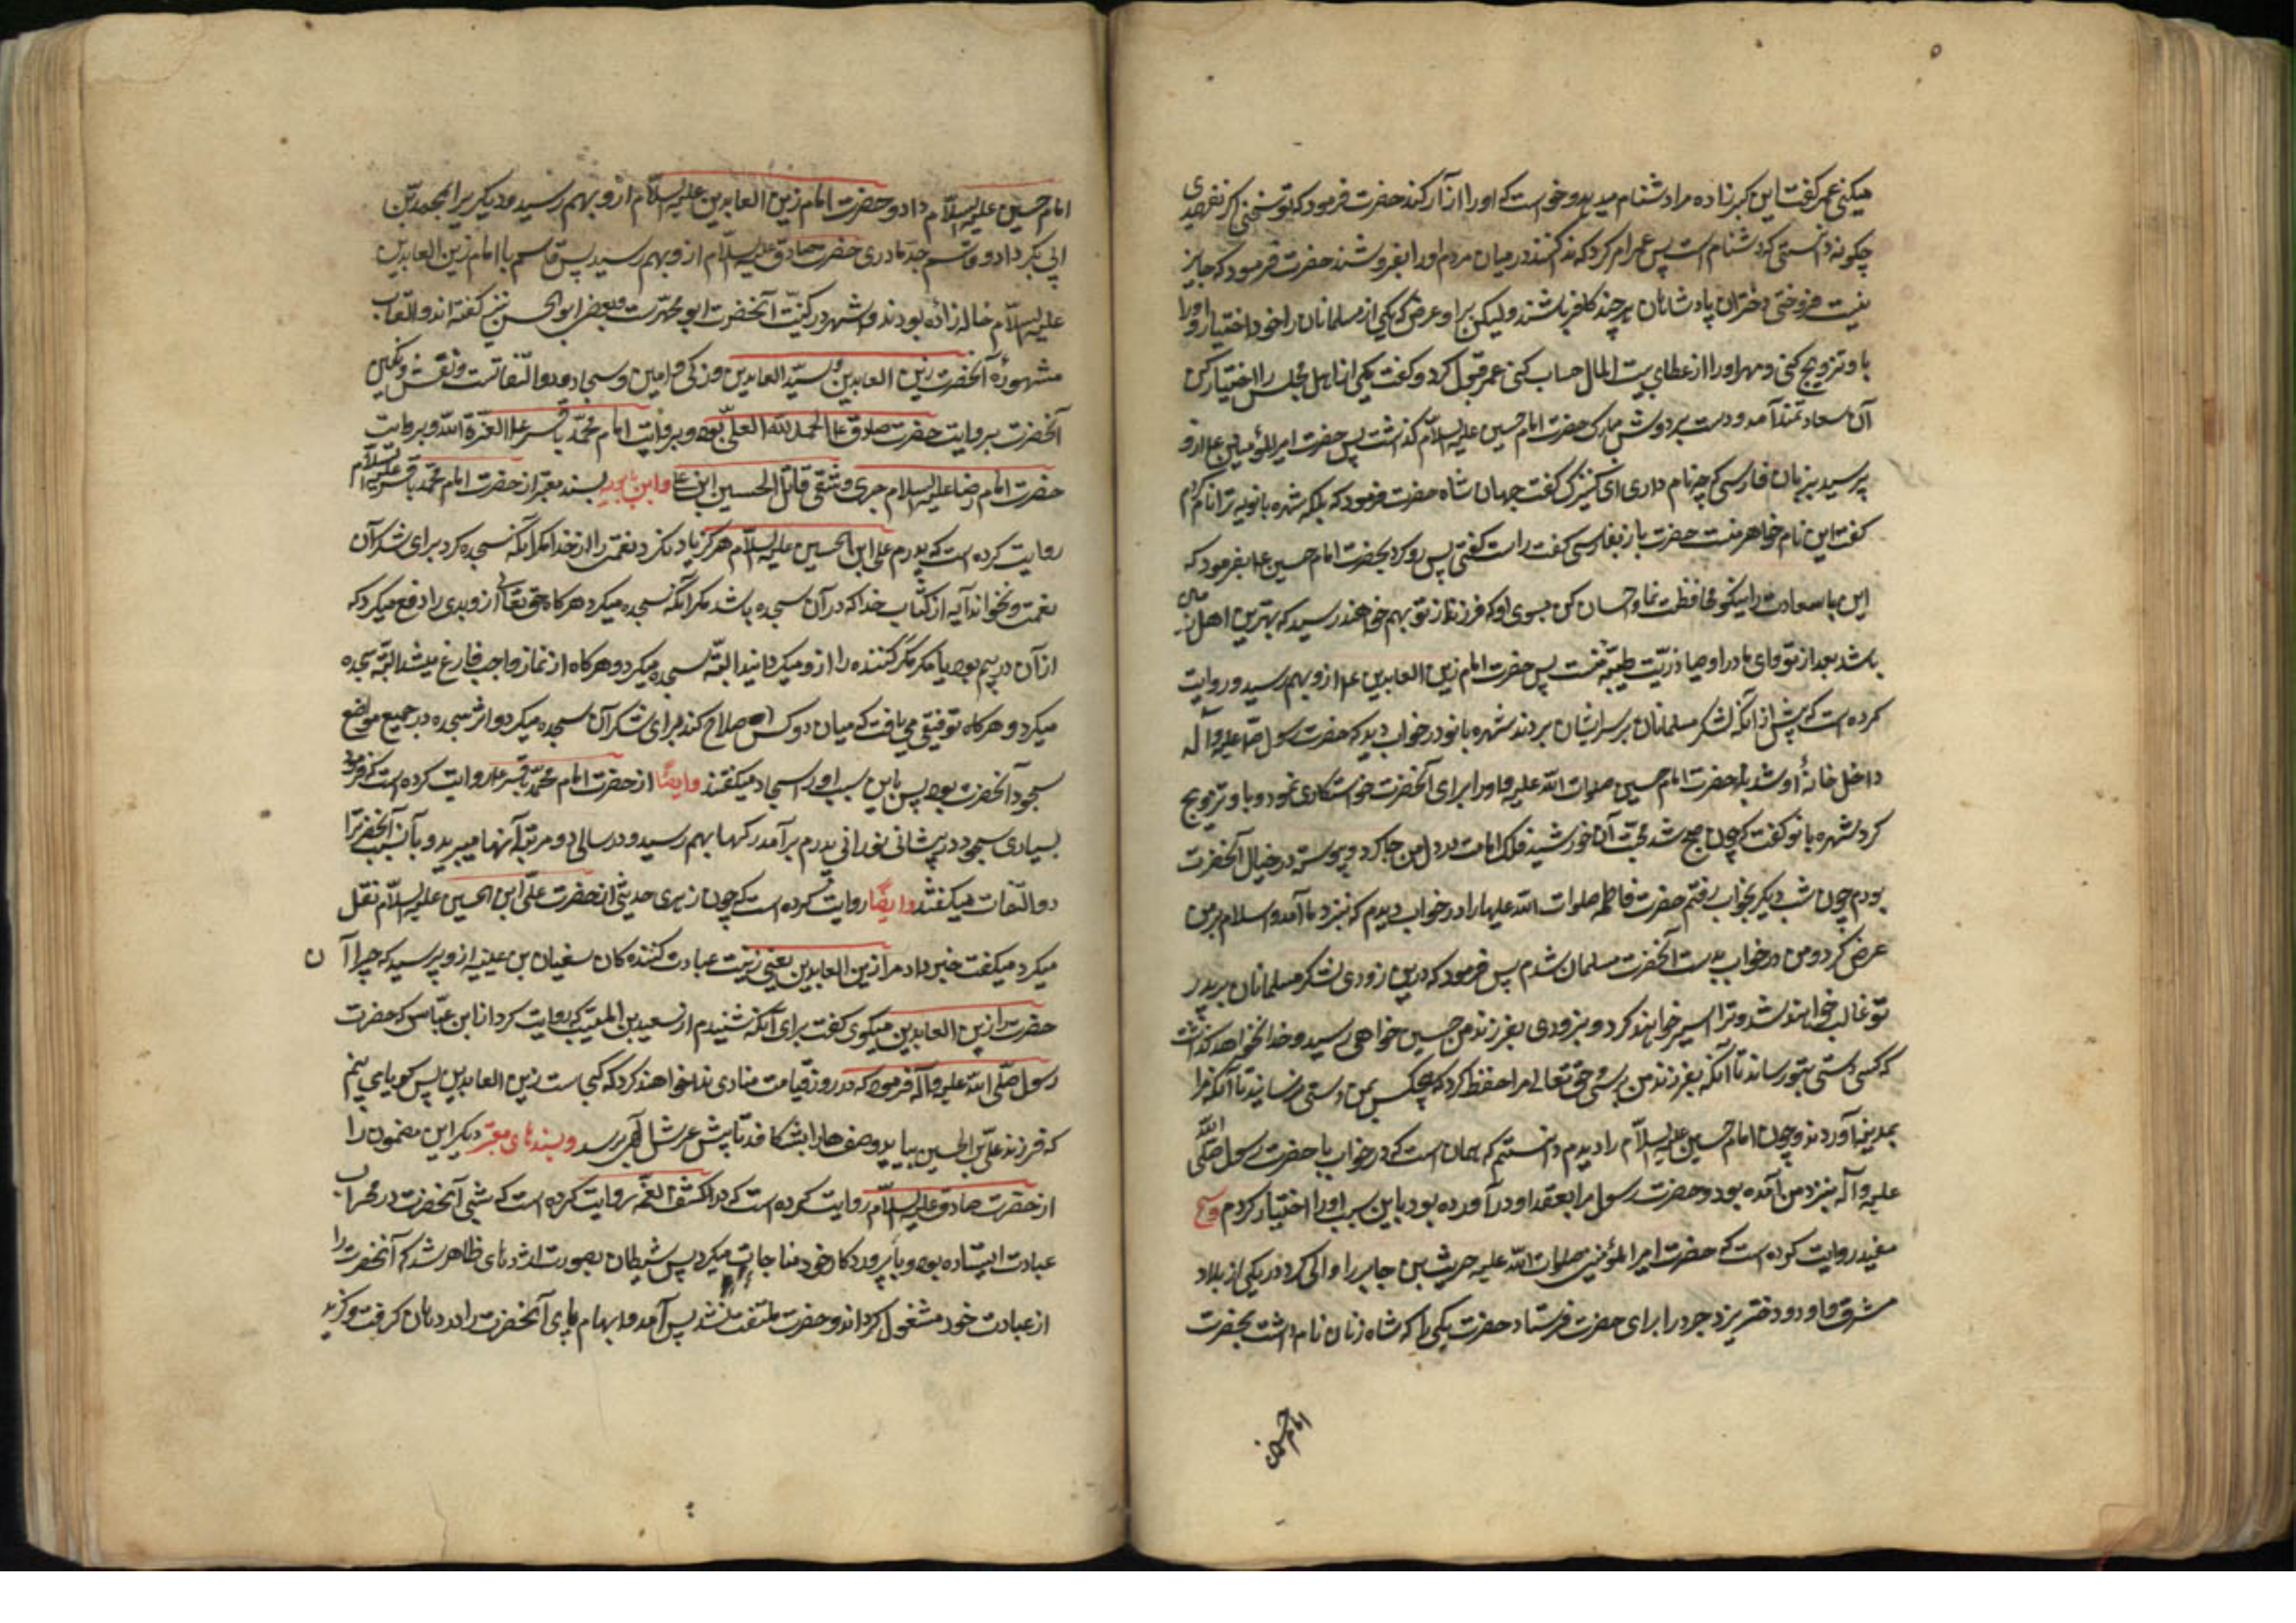 میکنی عمر گفت این گبرزاده مرا دشنام میدهد و خواست که او را آزار کند حضرت فرمود که تو سخنی که نفهمیدی
چگونه دانستی که دشنام است پس عمر امر کرد که ندا کنند در میان مردم و او را بفروشند حضرت فرمود که جایز
نیست فروختن دختران پادشاهان هر چند کافر باشند ولیکن بر او عرض کن که یکی از مسلمانان را خود اختیار و او را
باو تزویج کنی و مهر او را از عطای بیت المال حساب کنی عمر قبول کرد و گفت یکی از اهل مجلس را اختیار کن
آن سعادتمند آمد و دست بر دوش مبارک حضرت امام حسین علیه السلام گذاشت پس حضرت امیر المؤمنین ع از او
پرسید بزبان فارسی که چه نام داری ای کنیزک گفت جهان شاه حضرت فرمود که بلکه شهره بانویه ترا نام کردم
گفت این نام خواهر منست حضرت باز بفارسی گفت راست گفتی پس رو کرد بحضرت امام حسین ع و فرمود که
این با سعادت را نیکو محافظت نما و احسان کن بسوی او که فرزندی از تو بهم خواهد رسید که بهترین اهل زمین
باشد بعد از تو و این مادر اوصیا ذریت طیبه منست پس حضرت امام زین العابدین ع از او بهم رسید و روایت
کرده است که پیش از آنکه لشکر مسلمانان بر سر ایشان بروند شهره بانو در خواب دید که حضرت رسول صلی علیه و آله
داخل خانهٔ او شد با حضرت امام حسین صلوات الله علیه و او را برای آنحضرت خواستگاری نمود و باو تزویج
کرد شهره بانو گفت که چون صبح شد محبت آن خورشید فلک امامت در دل من جا کرد و پیوسته در خیال آنحضرت
بودم چون شب دیگر بخواب رفتم حضرت فاطمه صلوات الله علیها را در خواب دیدم که بنزد ما آمد و اسلام بر من
عرض کرد و من در خواب بدست آنحضرت مسلمان شدم پس فرمود که درین زودی لشکر مسلمانان بر پدر
تو غالب خواهند شد و ترا اسیر خواهند کرد و بزودی بفرزند من حسین خواهی رسید و خدا نخواهد گذاشت
که کسی دستی بتو رساند تا آنکه بفرزند من برسی و حق تعالی مرا حفظ کرد که هیچکس بمن دستی نرسانید تا آنکه مرا
بمدینه آوردند و چون امام حسین علیه السلام را دیدم دانستم که همان است که در خواب با حضرت رسول صلی الله
علیه و آله بنزد من آمده بود و حضرت رسول مرا بعقد او در آورده بود باین سبب او را اختیار کردم و شیخ
مفید روایت کرده است که حضرت امیر المؤمنین صلوات الله علیه حریث بن جابر را والی کرد در یکی از بلاد
مشرق و او دو دختر یزدجرد را برای حضرت فرستاد حضرت یکی را که شاه زنان نام داشت بحضرت
امام حسین
امام حسین علیه السلام داد و حضرت امام زین العابدین علیه السلام از او بهم رسید و دیگری را بمحمد بن
ابی بکر داد و قاسم جد مادری حضرت صادق علیه السلام از او بهم رسید پس قاسم با امام زین العابدین
علیه السلام خاله زاده بودند و مشهور در کنیت آنحضرت ابو محمد است و بعضی ابو الحسن نیز گفته اند و القاب
مشهورهٔ آنحضرت زین العابدین و سید العابدین و زکی و امین و سجاد و ذو الثفنات است و نقش نگین
آنحضرت بروایت حضرت صادق ع الحمد لله العلی بود و بروایت امام محمد باقر ع العزة لله و بروایت
حضرت امام رضا علیه السلام خزی و شقی قاتل الحسین ابن علی و ابن بابویه بسند معتبر از حضرت امام محمد باقر علیه السلام
روایت کرده است که پدرم علی ابن الحسین علیه السلام هرگز یاد نکرد نعمتی را از خدا مگر آنکه سجده کرد برای شکر آن
نعمت و نخواند آیه از کتاب خدا که در آن سجده باشد مگر آنکه سجده میکرد هرگاه حق تعالی از او بدی را دفع میکرد که
از آن در بیم بود یا مکر مکر کننده را از او میگردانید البته سجده میکرد و هرگاه از نماز واجب فارغ میشد البته سجده
میکرد و هرگاه توفیق می یافت که میان دو کس اصلاح کند برای شکر آن سجده میکرد و اثر سجده در جمیع مواضع
سجود آنحضرت بود پس باین سبب او را سجاد میگفتند و ایضا از حضرت امام محمد باقر ع روایت کرده است که فرمود
بسیاری سجود در پیشانی نورانی پدرم برآمدگیها بهم رسید و در سالی دو مرتبه آنها میبرید و بآن سبب آنحضرت را
ذو الثفنات میگفتند و ایضا روایت کرده است که چون زهری حدیثی از حضرت علی ابن الحسین علیه السلام نقل
میکرد میگفت خبر داد مرا زین العابدین یعنی زینت عبادت کننده کان سفیان بن عیینه از او پرسید که چرا آن
حضرت را زین العابدین میگوی گفت برای آنکه شنیدم از سعید بن المسیب که روایت کرد از ابن عباس که حضرت
رسول صلی الله علیه و آله فرمود که در روز قیامت منادی ندا خواهد کرد که کجاست زین العابدین پس گویا می بینم
که فرزندم علی بن الحسین بیاید و صفها را بشکافد تا پیش عرش الهی برسد و بسندهای معتبر دیگر این مضمون را
از حضرت صادق علیه السلام روایت کرده است که در کشف الغمه روایت کرده است که شبی آنحضرت در محراب
عبادت ایستاده بود و با پروردگار خود مناجات میکرد پس شیطان بصورت اژدهای ظاهر شد که آنحضرت را
از عبادت خود مشغول گرداند و حضرت ملتفت نشد پس آمد و ابهام پای آنحضرت را در دهان گرفت و گزید